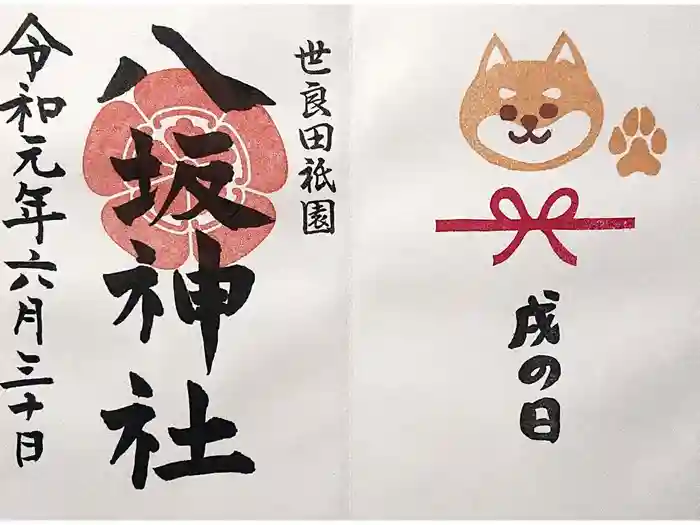 世良田祇園
八坂神社
令和元年六月三十日
戌の日